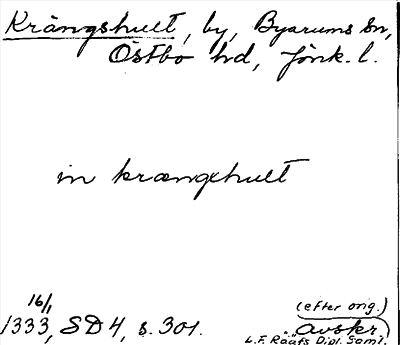 Krängshult, by, Byarums sn,
Östbo hd, Jönk. l.
in krængxhult
16/1
1333, SD 4, s. 301.
(efter orig.)
avskr.
L.F. Rääfs Dipl. Saml.